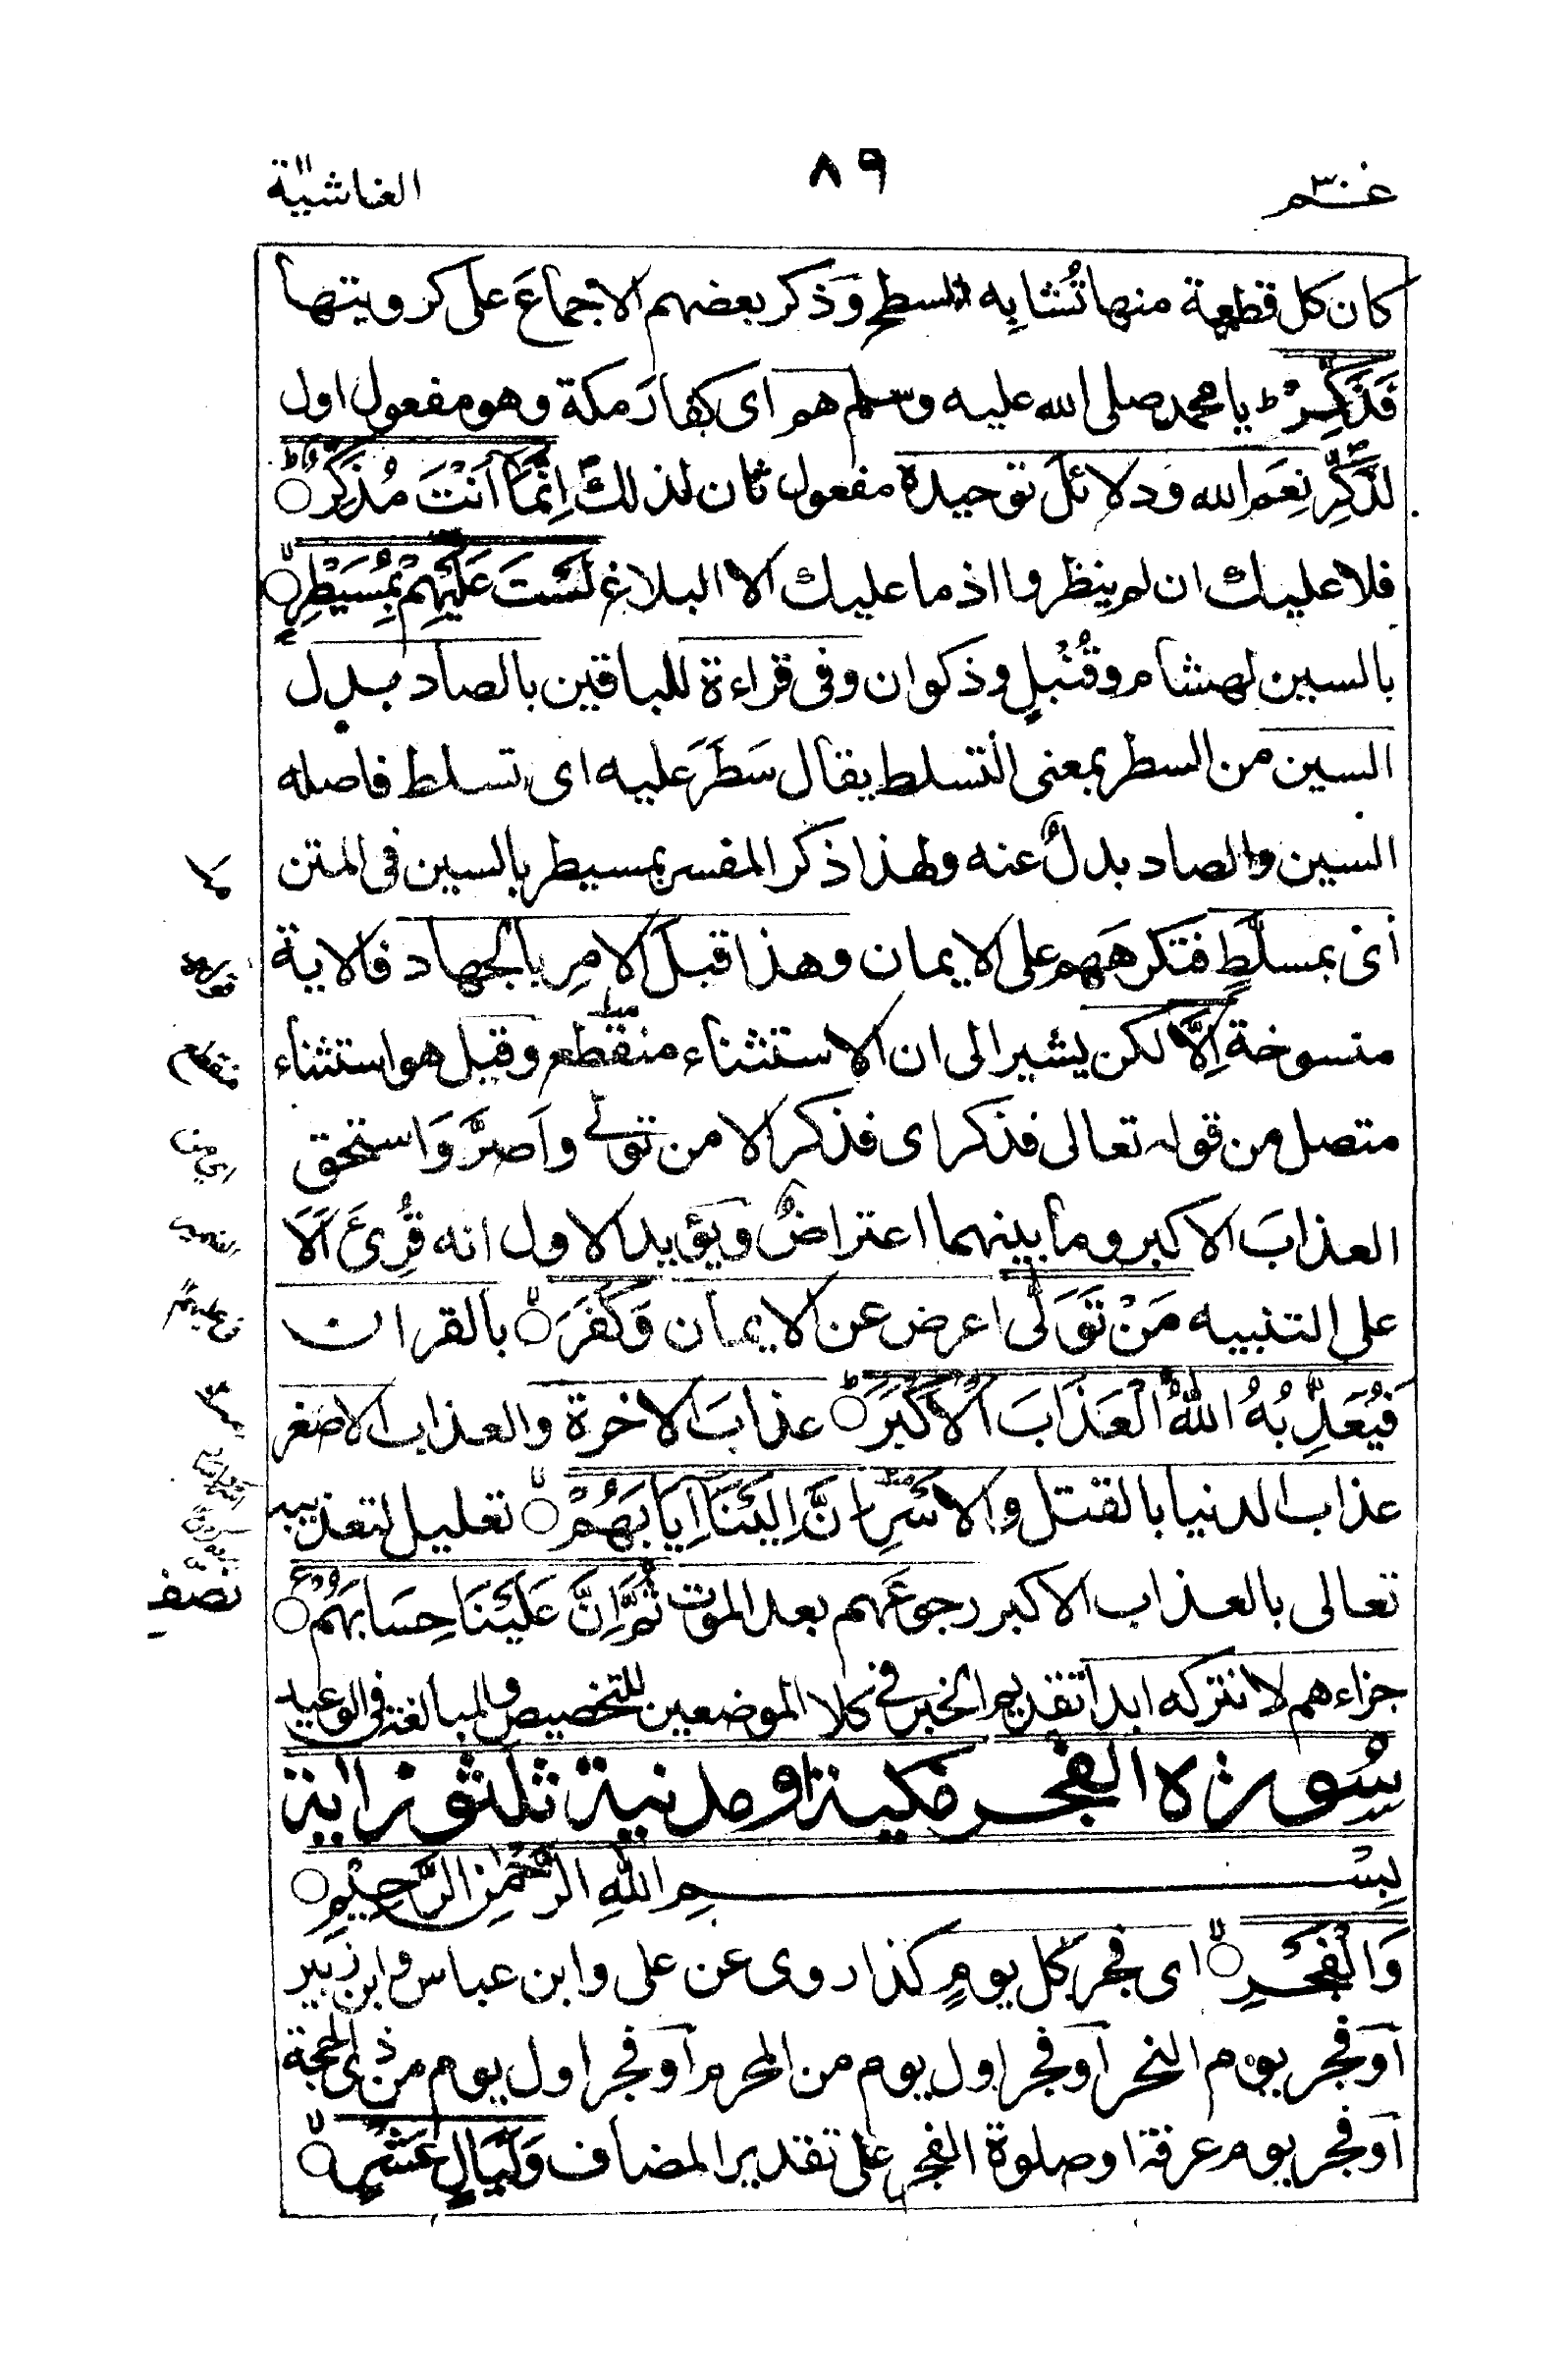 عم ٣٠ ٨٩ الغاشية
كان كل قطعة منها تُشابِه السطح وَذكر بعضهم الاجماعَ على كرويتها
فَذَكِّرْ ط يا محمد صلى الله عليه وسلم هم اى كفارَ مكة وهو مفعول اول
لذَكِّرْ نِعَم الله ودلائلَ توحيده مفعول ثان لذلك اِنَّمَآ اَنْتَ مُذَكِّرٌ ط
فلا عليك ان لم ينظروا اذ ما عليك الا البلاغ لَسْتَ عَلَيْهِمْ بِمُسَيْطِرٍ لا
بالسين لهشام وقُنْبلٍ وذكوان وفى قراءة للباقين بالصاد بدل
السين من السطر بمعنى التسلط يقال سَطَرَ عليه اى تسلط فاصله
السين والصاد بدلٌ عنه ولهذا ذكر المفسر بمسيطر بالسين فى المتن
أى بمسلَّطٍ فتكرههم على الايمان وهذا قبلَ الامرِ بالجهاد فالاية
منسوخة اِلَّا لكن يشير الى ان الاستثناء منقطع وقيل هو استثناء
متصل من قوله تعالى فذكر اى فذكر الا من تولى واَصرَّ وَاستحق
العذابَ الاكبر وما بينهما اعتراضٌ ويؤيد الاول انه قُرِئَ اَلَا
على التنبيه مَنْ تَوَلّٰى اعرض عن الايمان وَكَفَرَ لا بالقران
فَيُعَذِّبُهُ اللّٰهُ الْعَذَابَ الْاَكْبَرَ ط عذابَ الاخرة والعذاب الاصغر
عذاب الدنيا بالقتل والاَسْرِ اِنَّ اِلَيْنَآ اِيَابَهُمْ لا تعليل لتعذيبه
تعالى بالعذاب الاكبر رجوعَهم بعد الموت ثُمَّ اِنَّ عَلَيْنَا حِسَابَهُمْ ع
جزاءهم لا نتركه ابدا تقديم الخبر فى كلا الموضعين للتخصيص والمبالغة فى الوعيد
نصف
سُورة الفجر مكية او مدنية ثلثون اية
بِسْمِ اللّٰهِ الرَّحْمٰنِ الرَّحِيْمِ
وَالْفَجْرِ لا اى فجر كل يومٍ كذا روى عن على وابن عباس وابن زبير
اَو فجر يوم النحر اَو فجر اول يوم من المحرم اَو فجر اول يوم من ذى الحجة
اَو فجر يوم عرفة او صلوة الفجر على تقدير المضاف وَلَيَالٍ عَشْرٍ لا